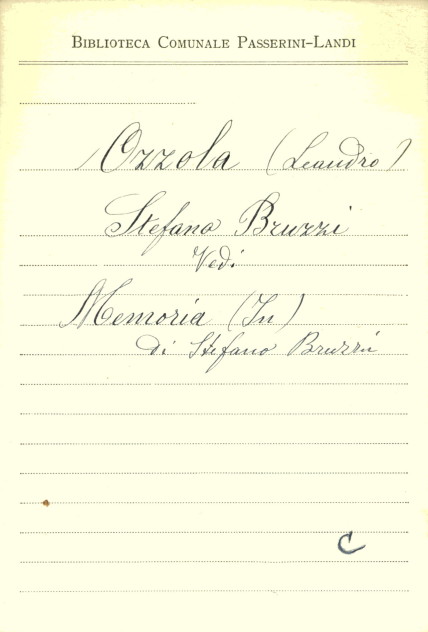 BIBLIOTECA COMUNALE PASSERINI-LANDI
Ozzola (Leandro)
Stefano Bruzzi
Vedi
Memoria (In)
di Stefano Bruzzi
C